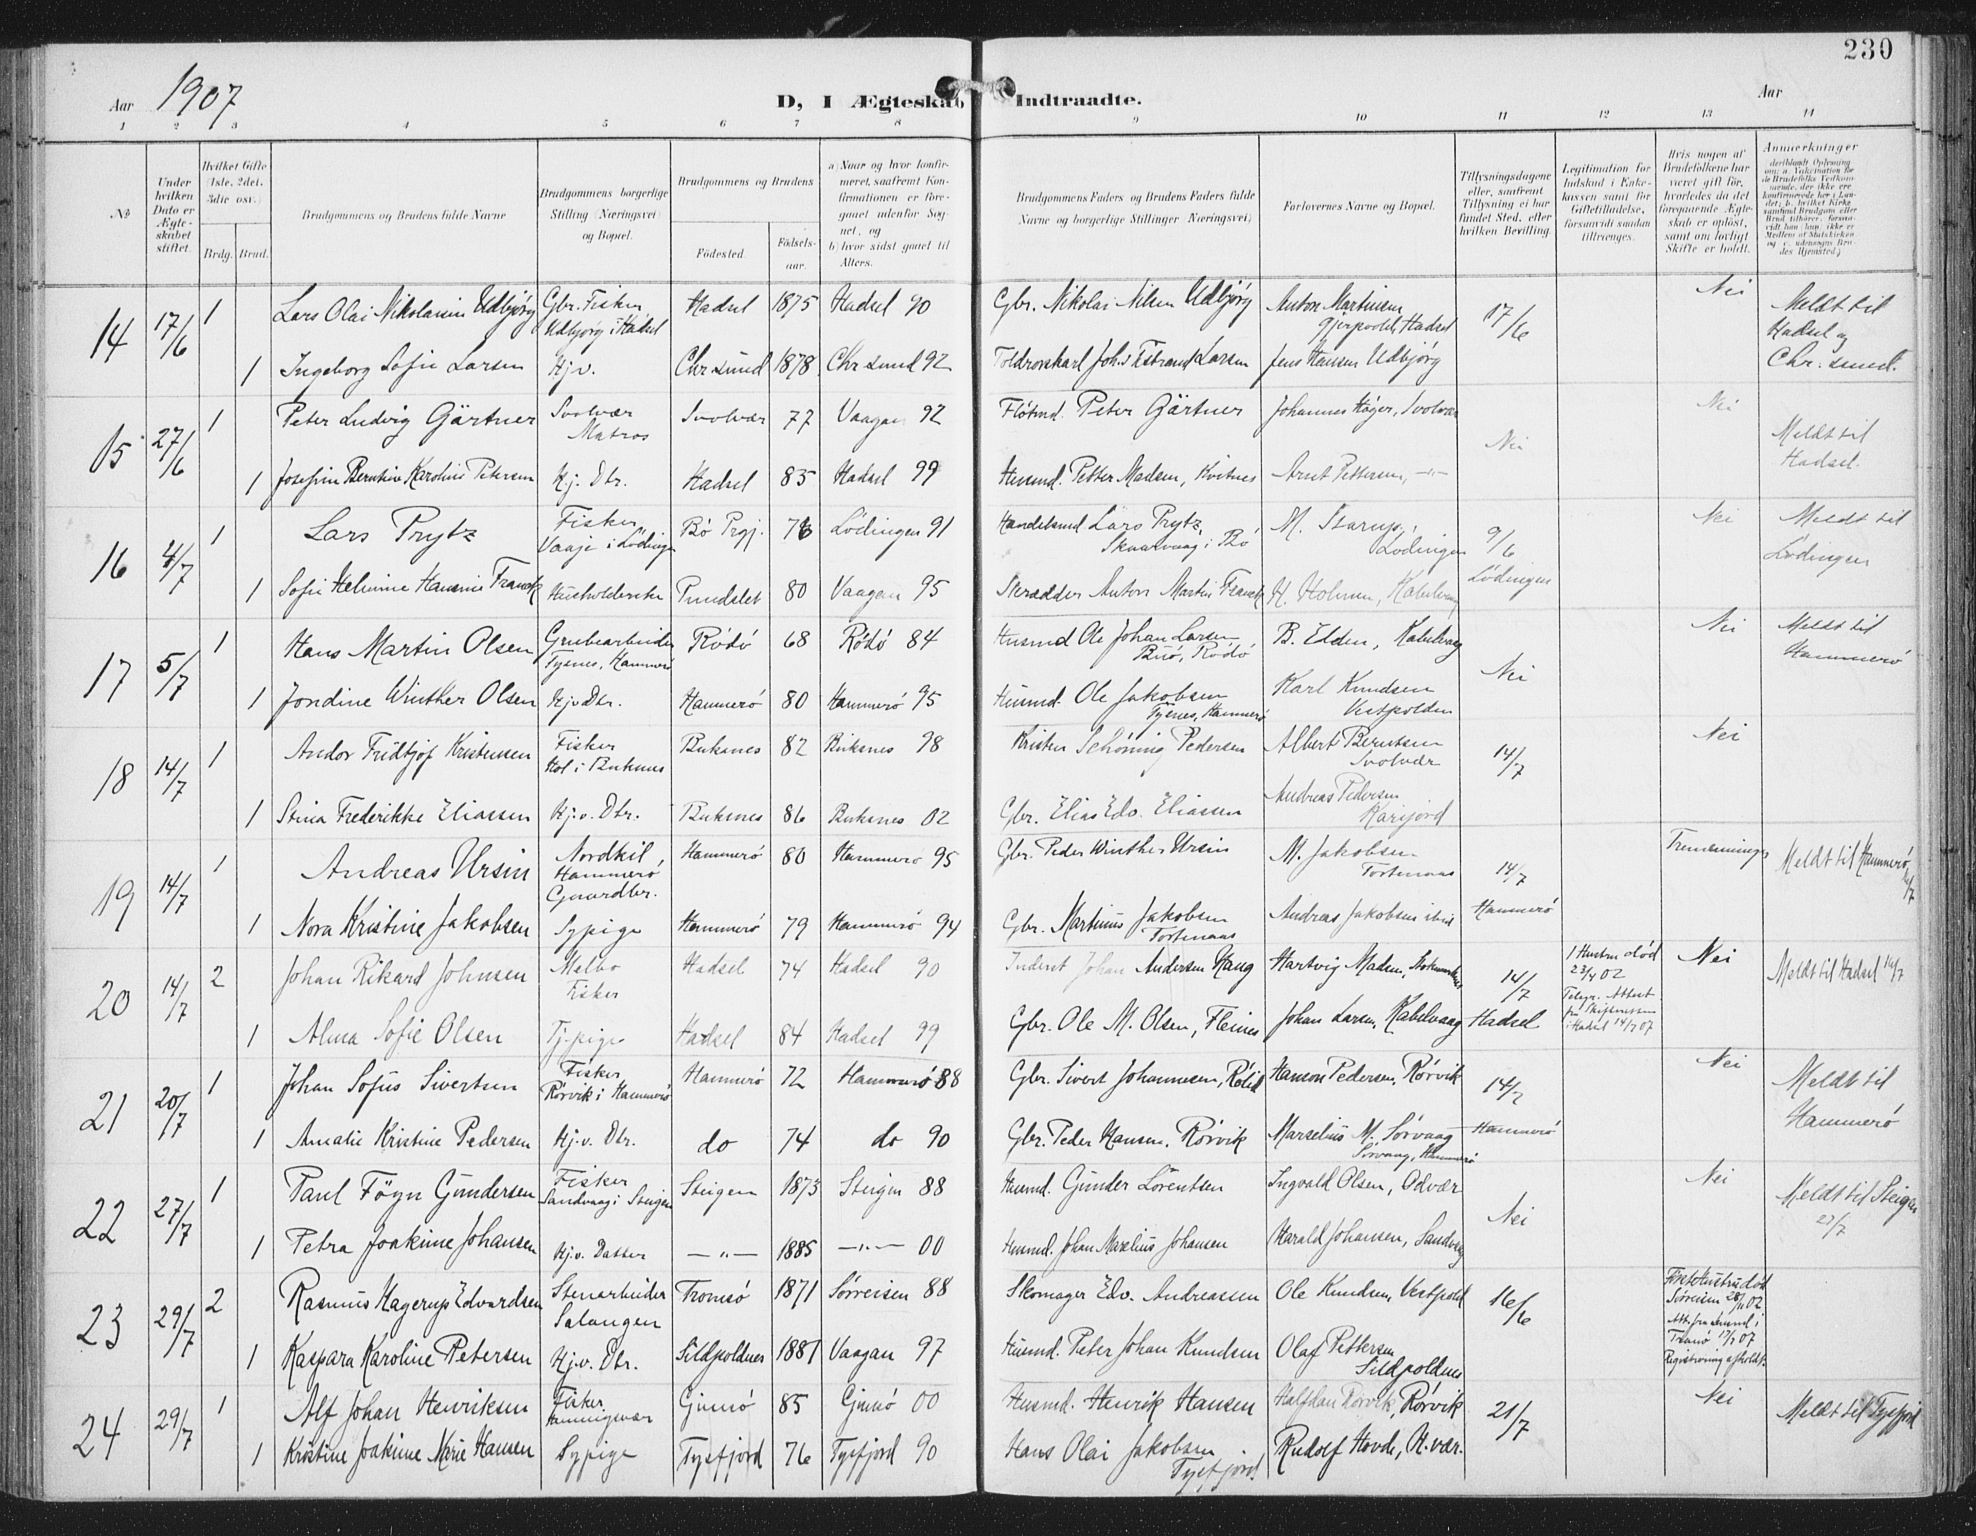 230
Aar 1907
D, I Ægteskab Indtraadte.
Aar
1 2 3 4 5 6 7 8 9 10 11 12 13 14
№
Under hvilken Dato er Ægteskabet stiftet.
Hvilket Gifte (1ste, 2det, 3die osv.)
Brdg. Brud.
Brudgommens og Brudens fulde Navne
Brudgommens borgerlige Stilling (Næringsvei) og Bopæl.
Brudgommens og Brudens
Födested.
Födselsaar.
a) Naar og hvor konfirmeret, saafremt Konfirmationen er foregaaet udenfor Sognet, og
b) hvor sidst gaaet til Alters.
Brudgommens Faders og Brudens Faders fulde Navne og borgerlige Stillinger (Næringsvei)
Forlovernes Navne og Bopæl.
Tillysningsdagene eller, saafremt Tillysning ei har fundet Sted, efter hvilken Bevilling.
Legitimation for Indskud i Enkekassen samt for Giftetilladelse, forsaavidt saadan tiltrænges.
Hvis nogen af Brudefolkene har været gift før, hvorledes da det foregaaende Ægteskab er oplöst, samt om lovligt Skifte er holdt.
Anmerkninger
14 17/6 1 Lars Olai Nikolaisen Udbjörg Gbr. Fisker Udbjörg i Hadsel Hadsel 1875 Hadsel 90 Gbr. Nikolai Nilsen Udbjörg Anton Martinsen Hadsel 17/6 Nei Meldt til Hadsel og Chr.sund.
1 Ingeborg Sofie Larsen Hj.v. Chrsund 1878 Chrsund 92 Larsen Jens Hansen Udbjörg
15 27/6 1 Peter Ludvig Gärtner Svolvær Matros Svolvær 77 Vaagan 92 Peter Gärtner Johannes Höger, Svolvær Nei Nei Meldt til Hadsel.
1 Josefine Berntine Karoline Petersen Hj. Dtr. Hadsel 85 Hadsel 99 Husmd. Petter Madsen, Kvitnes Arnt Pettersen, —"—
16 4/7 1 Lars Prytz Fisker Vaaje i Lödingen Bö Prgj. Lödingen 91 Handelsmd Lars Prytz, i Bö M. Lödingen 9/6 Lödingen Nei Meldt til Lödingen
1 Sofie Helmine Hansine Franck Husholderske 80 Vaagan 95 Skrædder Anton Martin Franck H. Kabelvaag
17 5/7 1 Hans Martin Olsen Grubearbeider Tysnes, Hammerö Rödö 68 Rödö 84 Husmd Ole Johan Larsen Rödö B. Elden, Kabelvaag Nei Nei Meldt til Hammerö
1 Jondine Winther Olsen Hj.v Dtr. Hammerö 80 Hammerö 95 Husmd. Ole Jakobsen Tysnes, Hammerö Karl Knudsen Vestpolden
18 14/7 1 Andor Fridtjof Kristensen Fisker Hol i Buksnes Buksnes 82 Buksnes 98 Kristen Schöning Pedersen Albert Berntsen Svolvær 14/7 Nei
1 Stina Frederikke Eliassen Hj.v. Dtr. Buksnes 86 Buksnes 02 Gbr. Elias Edv. Eliassen Andreas Pedersen
19 14/7 1 Andreas Ursin Nordkil, Hammerö Gaardbr. Hammerö 80 Hammerö 95 Gbr. Peder Winther Ursin M. Jakobsen Tortenaas 14/7 Hammerö Tremenninger Meldt til Hammerö
1 Nora Kristine Jakobsen Sypige Hammerö 79 Hammerö 94 Gbr. Martinus Jakobsen Tortenaas Andreas Jakobsen ibid
20 14/7 2 Johan Rikard Johnsen Melbo Fisker Hadsel 74 Hadsel 90 Inderst Johan Andersen Haug Hartvig Madsen, 14/7 Hadsel 1 Hustru död 02 Telegr. Attest fra Skifteretten i Hadsel 14/7 07 Nei Meldt til Hadsel 14/7
1 Alma Sofie Olsen Tj.pige Hadsel 84 Hadsel 99 Gbr. Ole M. Olsen, Fleines Johan Larsen, Kabelvaag
21 20/7 1 Johan Sofus Sivertsen Fisker Rörvik i Hammerö Hammerö 72 Hammerö 88 Gbr. Sivert Johannesen, Hanson Pedersen, Rörvik 14/7 Hammerö Nei Meldt til Hammerö
1 Amalie Kristine Pedersen Hj.v. Dtr. do 74 do 90 Gbr. Peder Hansen, Rörvik Marselius M. Sörvaag Sörvaag, Hammerö
22 27/7 1 Paul Föyn Gundersen Fisker Sandvaag i Steigen Steigen 1873 Steigen 88 Husmd. Gunder Lorentsen Ingvald Olsen, Odvær Nei Nei Meldt til Steigen 27/7
1 Petra Joakime Johansen Hj.v. Datter —"— 1885 —"— 00 Husmd. Johan Marelius Johansen Harald Johansen, Sandvaag
23 29/7 2 Rasmus Hagerup Edvardsen Stenarbeider Salangen Tromsö 1871 Sörreisen 88 Skomager Edv. Andreassen Ole Knudsen, Vestpold 16/6 Förste Hustru död Sörreisen 02. Att. fra i Tranö 07 Registrering afholdt.
1 Kaspara Karoline Petersen Hj.v. Dtr. Sildpoldnes 1881 Vaagan 97 Husmd. Peter Johan Knudsen Olaf Pettersen Sildpoldnes
24 29/7 1 Alf Johan Henriksen Fisker Henningsvær Gimsö 85 Gimsö 00 Husmd. Henrik Hansen Halfdan Rörvik, Rörvik 21/7 Nei Meldt til Tysfjord
1 Kristine Joakime Marie Hansen Sypige Tysfjord 76 Tysfjord 90 Hans Olai Jakobsen Tysfjord. Rudolf Hovde, H.vær.